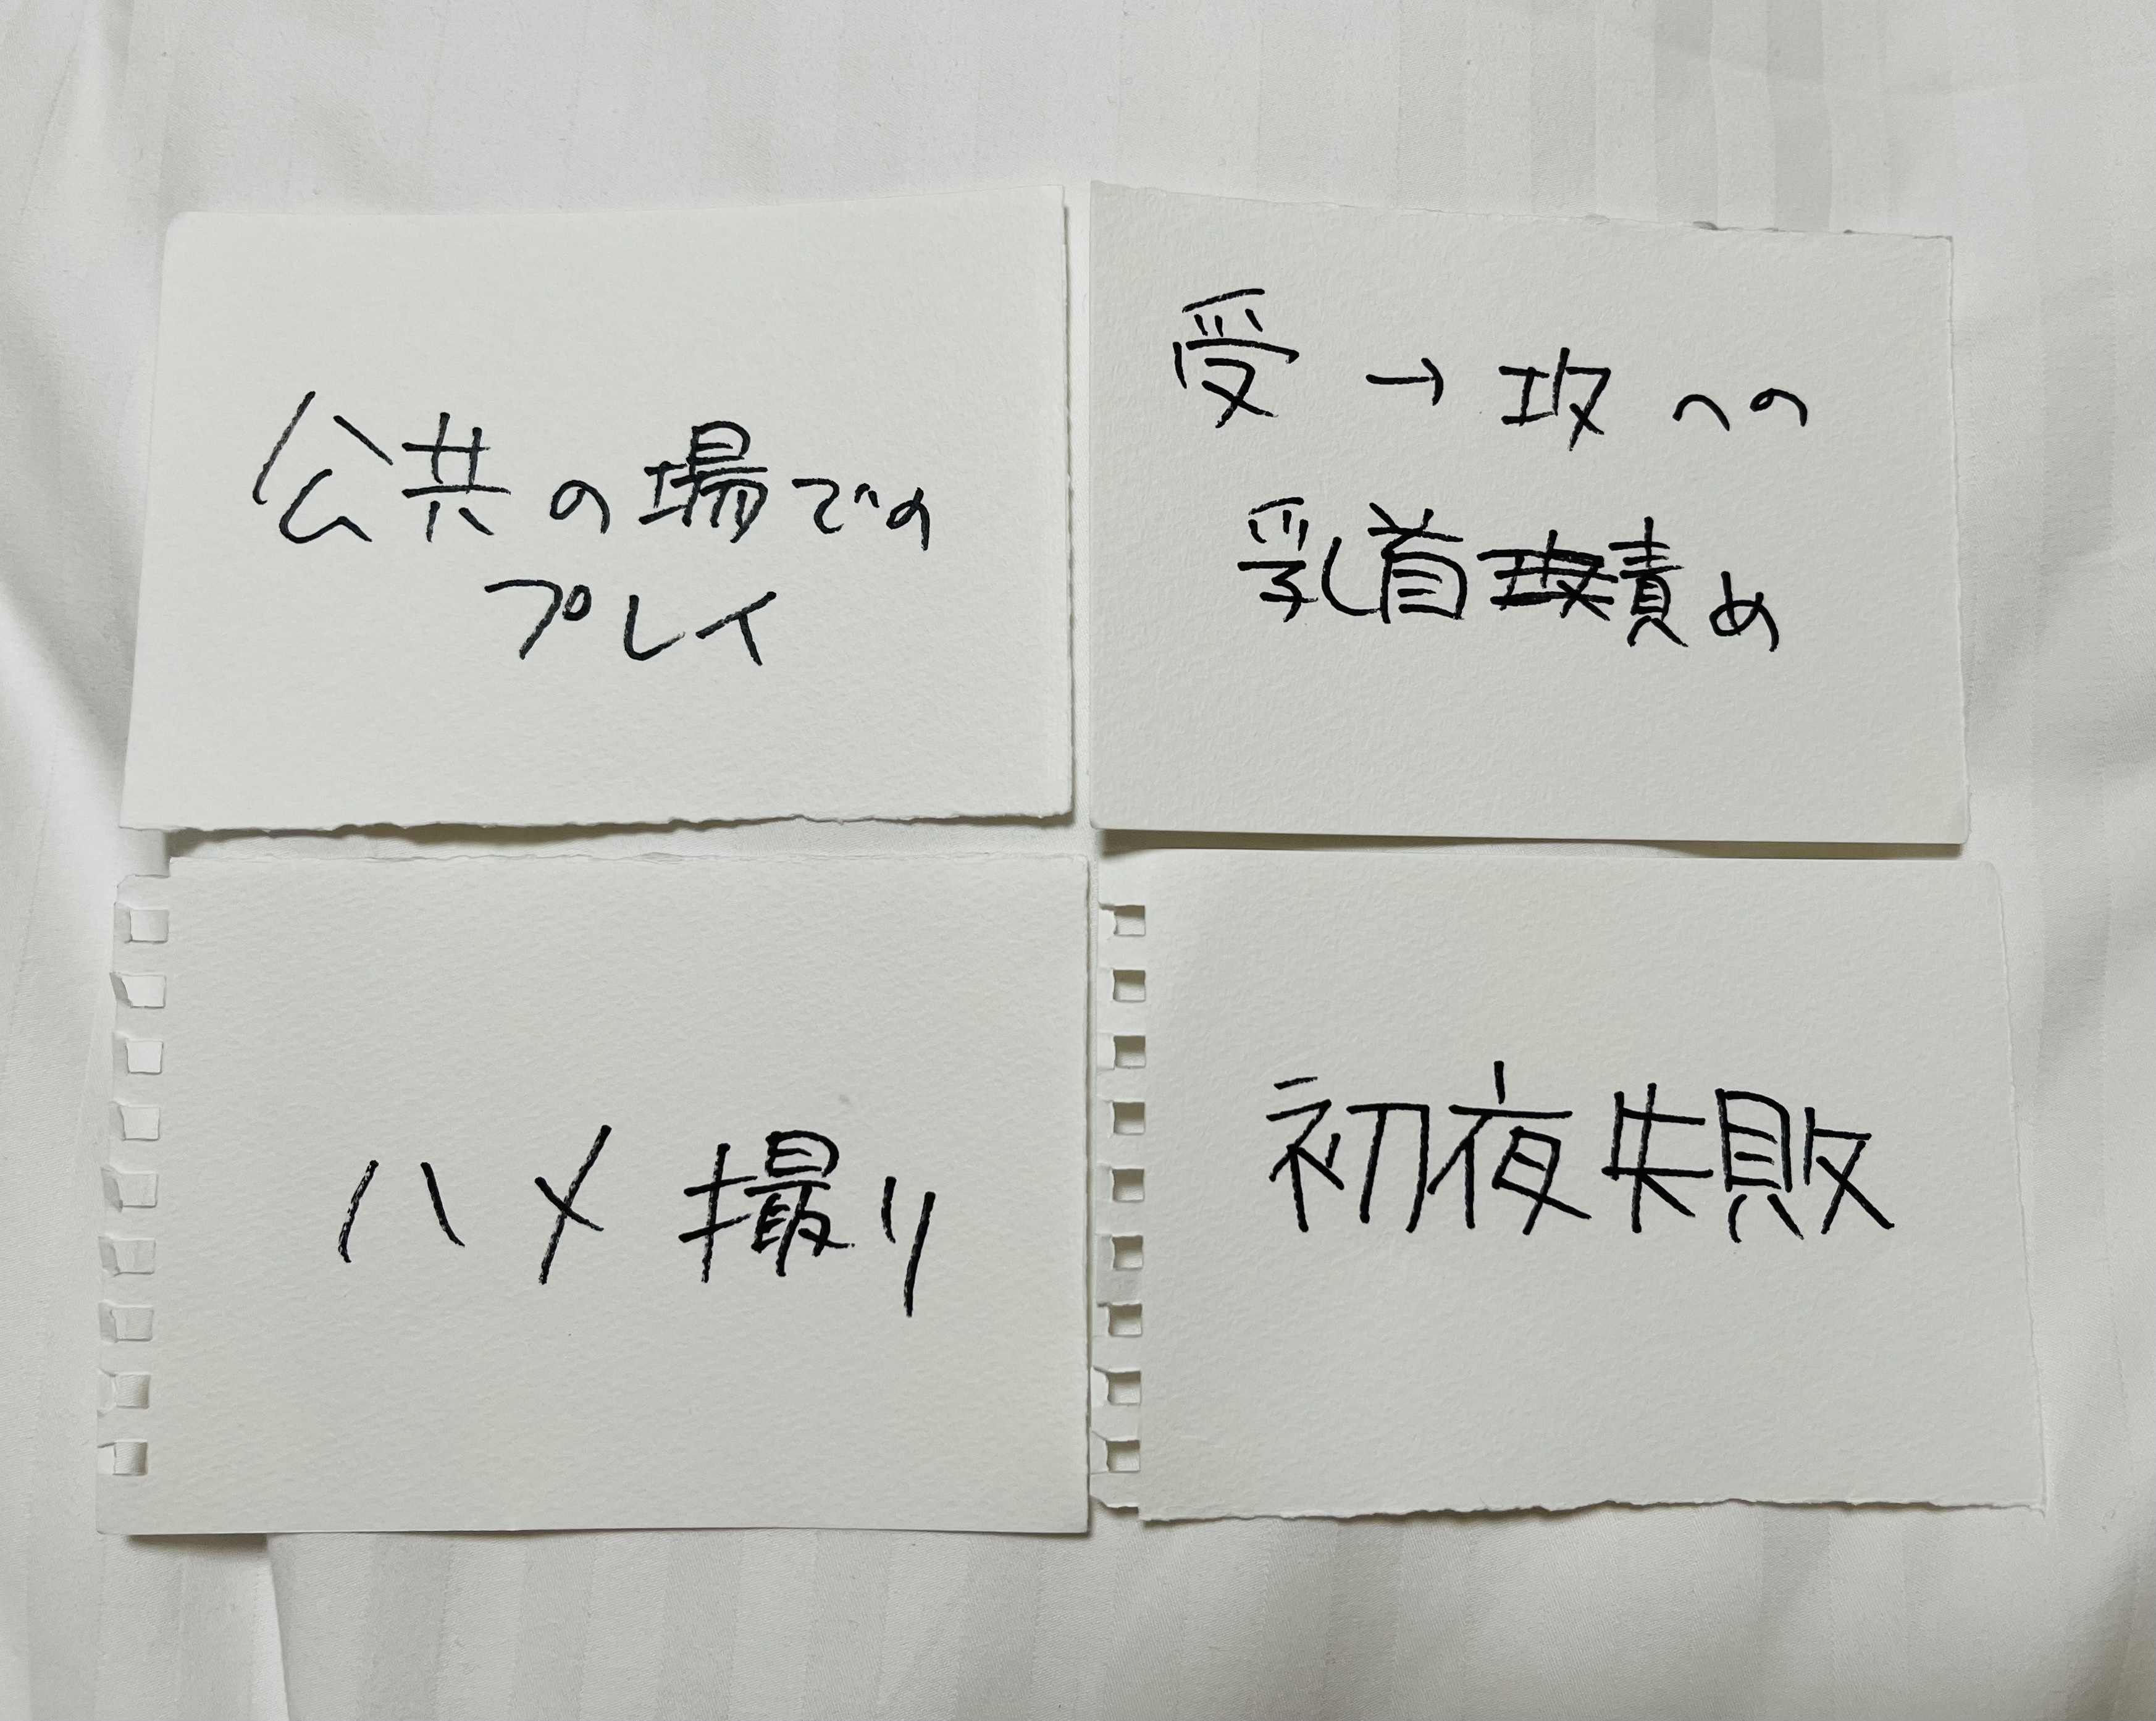 公共の場での
プレイ
受→攻への
乳首責め
ハメ撮り
初夜失敗